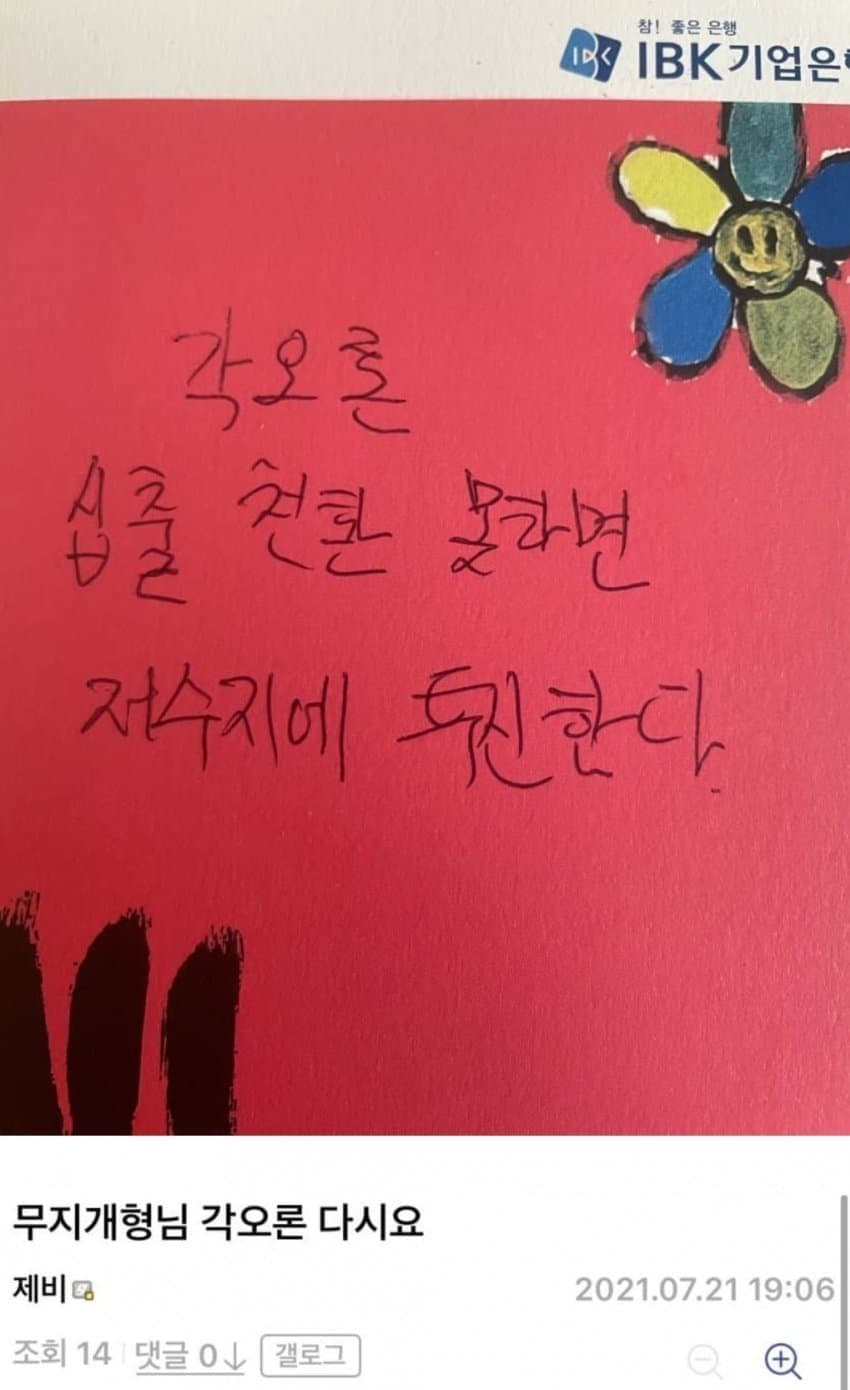 참! 좋은 은행
IBK기업은
각오론
십출 천환 못라면
저수지에 투진한다.
무지개형님 각오론 다시요
제비
2021.07.21 19:06
조회 14 댓글 0↓ 갤로그